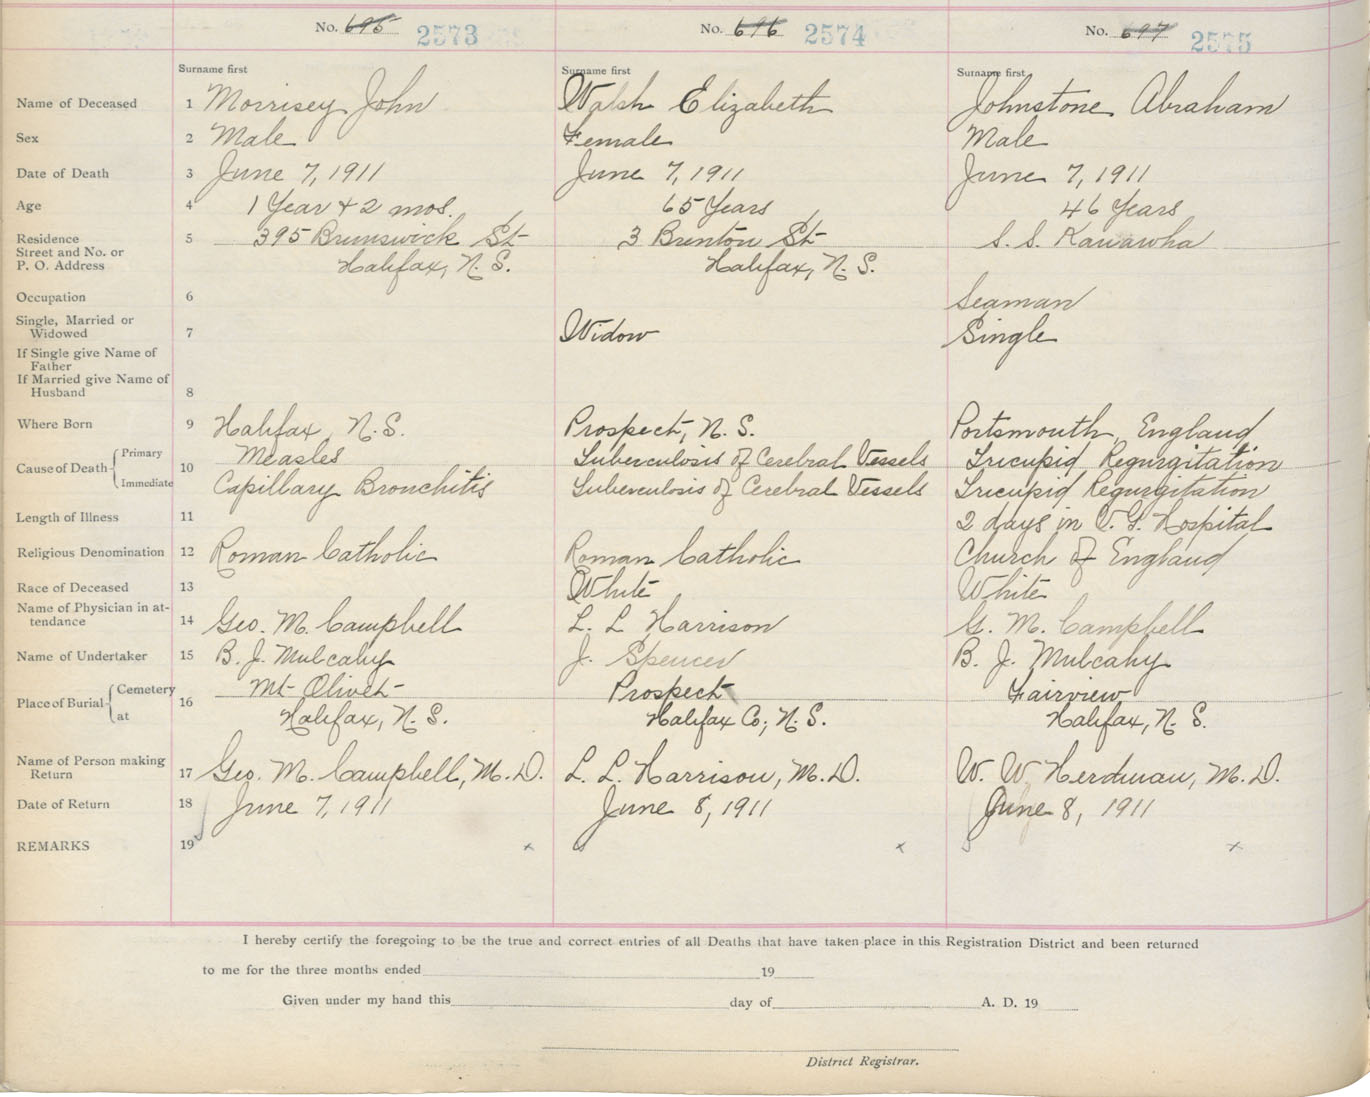 No. 695 2573 No. 696 2574 No. 697 2575
Surname first Surname first Surname first
Name of Deceased 1 Morrisey John Walsh Elizabeth Johnstone Abraham
Sex 2 Male Female Male
Date of Death 3 June 7, 1911 June 7, 1911 June 7, 1911
Age 4 1 Year & 2 mos. 65 Years 46 Years
Residence 5 395 Brunswick St 3 Brenton St S. S. Kanawha
Street and No. or
P. O. Address Halifax, N. S. Halifax, N. S.
Occupation 6 Seaman
Single, Married or
Widowed 7 Widow Single
If Single give Name of
Father
If Married give Name of
Husband 8
Where Born 9 Halifax, N. S. Prospect, N. S. Portsmouth, England
Cause of Death Primary 10 Measles Tuberculosis of Cerebral Vessels Tricupid Regurgitation
Immediate Capillary Bronchitis Tuberculosis of Cerebral Vessels Tricupid Regurgitation
Length of Illness 11 2 days in V. G. Hospital
Religious Denomination 12 Roman Catholic Roman Catholic Church of England
Race of Deceased 13 White White
Name of Physician in at-
tendance 14 Geo. M. Campbell L. L Harrison G. M. Campbell
Name of Undertaker 15 B. J. Mulcahy J. Spencer B. J. Mulcahy
Place of Burial Cemetery 16 Mt Olivet Prospect Fairview
at Halifax, N. S. Halifax Co; N. S. Halifax, N. S.
Name of Person making
Return 17 Geo. M. Campbell, M. D. L. L. Harrison, M. D. W. W Herdman, M. D.
Date of Return 18 June 7, 1911 June 8, 1911 June 8, 1911
REMARKS 19 x x x
I hereby certify the foregoing to be the true and correct entries of all Deaths that have taken place in this Registration District and been returned
to me for the three months ended 19
Given under my hand this day of A. D. 19
District Registrar.